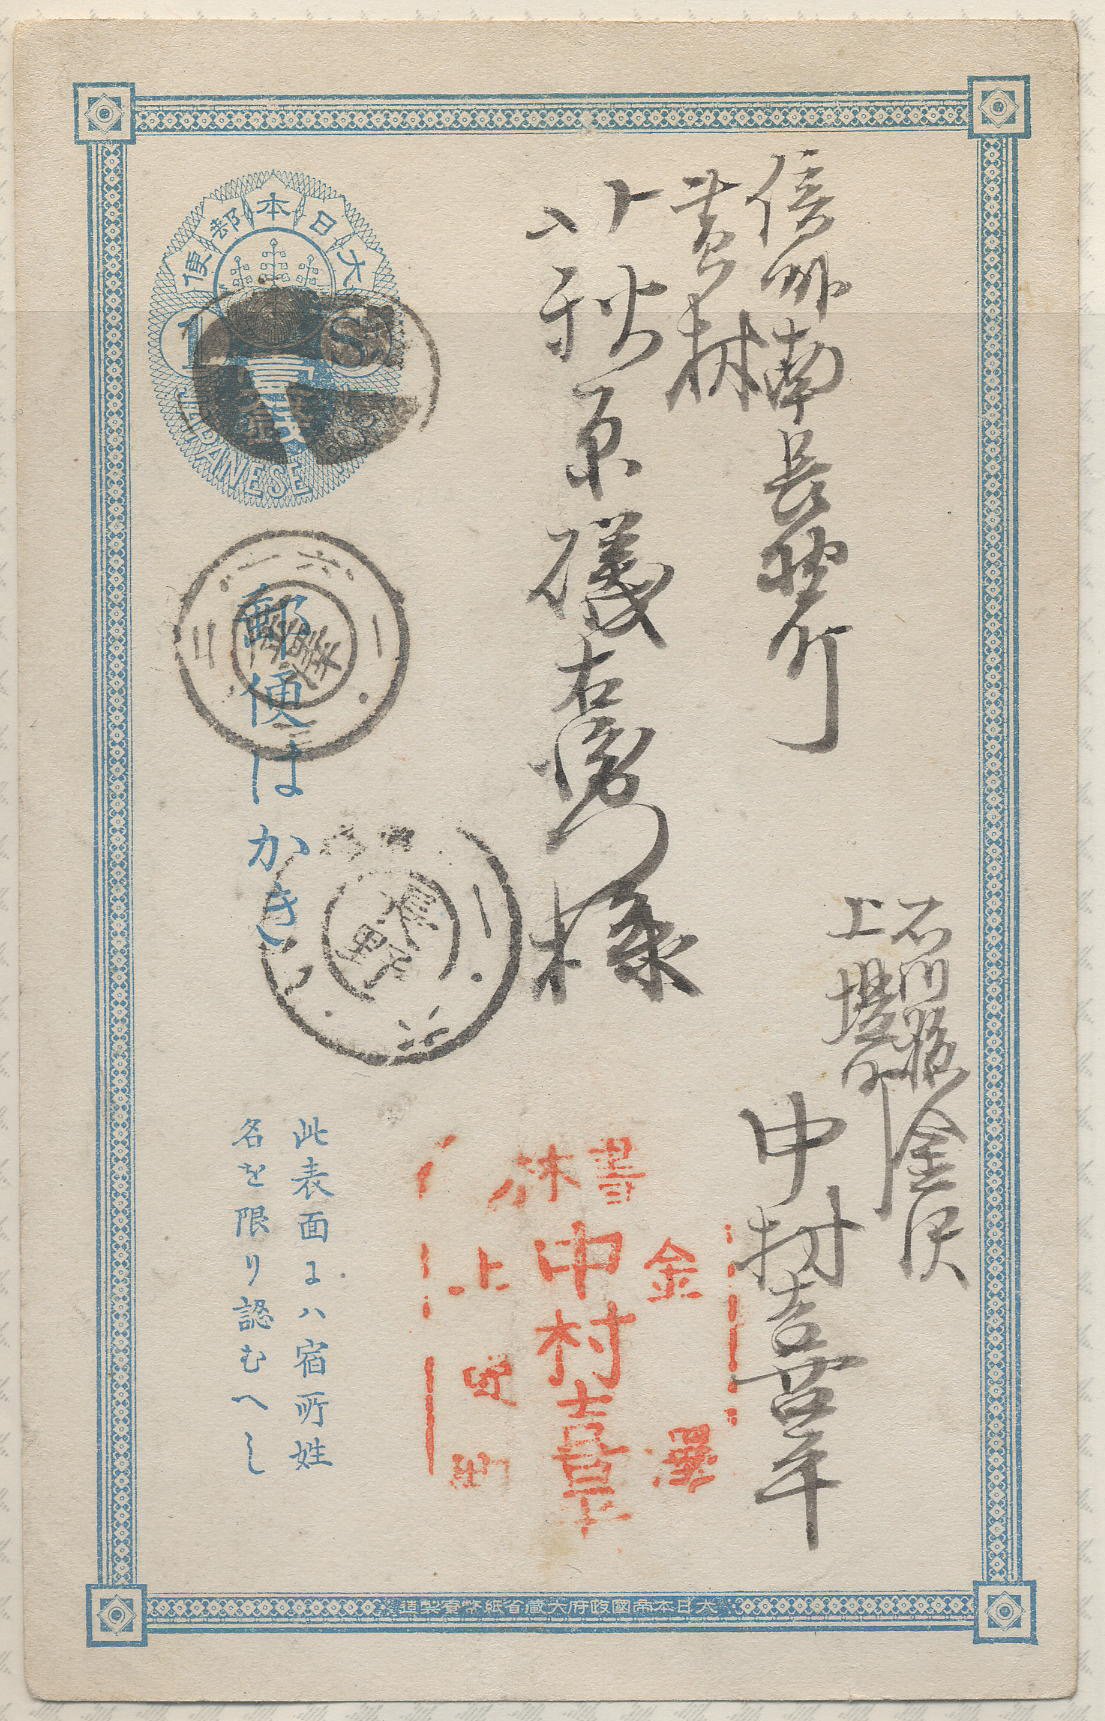 信州南長野町
黄村
小秋原礒右衛門様
石川縣金沢
上堤町
中村喜平
書林
金澤
中村喜平
上堤町
大日本郵便
1 SN
壹錢
JAPANESE
郵便はかき
長野
二
此表面にハ宿所姓
名を限り認むへし
大日本帝國政府大蔵省紙幣寮製造